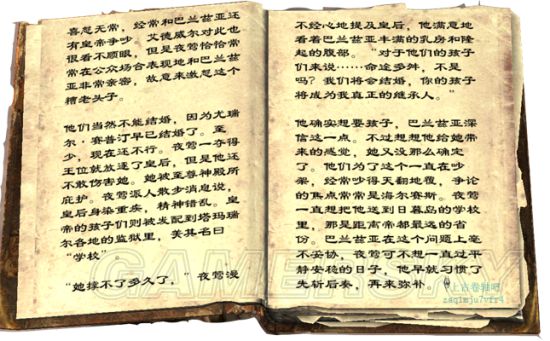 喜怒无常，经常和巴兰兹亚还
有皇帝争吵。艾德威尔对此也
很看不顺眼，但是夜莺恰恰常
常在公众场合表现地和巴兰兹
亚非常亲密，故意来激怒这个
糟老头子。
他们当然不能结婚，因为尤瑞
尔·赛普汀早已结婚了。至
少，现在还不行。夜莺一夺得
王位就放逐了皇后，但是他还
不敢伤害她。她被至尊神殿所
庇护。夜莺派人散步消息说，
皇后身染重疾，精神错乱。皇
帝的孩子们则被发配到塔玛瑞
尔各地的监狱里，美其名曰
“学校”。
“她撑不了多久了，”夜莺漫
不经心地提及皇后，他满意地
看着巴兰兹亚丰满的乳房和隆
起的腹部。“对于他们的孩子
们来说······命途多舛，不是
吗？我们将会结婚，你的孩子
将成为我真正的继承人。”
他确实想要孩子，巴兰兹亚深
信这一点。不过想想他给她带
来的感觉，她又没那么确定
了。他们为了这个一直在吵
架，经常吵得天翻地覆，争论
的焦点常常是海尔赛斯。夜莺
一直想把他送到日暮岛的学校
里，那是距离帝都最远的省
份。巴兰兹亚在这个问题上毫
不妥协，夜莺可不想一直过平
静安稳的日子，他早就习惯了
先斩后奏，再来弥补。
上古卷轴吧
zaq1mju7vfr4
GAMERSKY